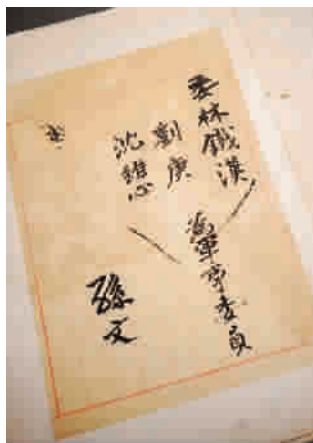 委林鐵漢
劉庚
沈維心
為軍事委員
孫文